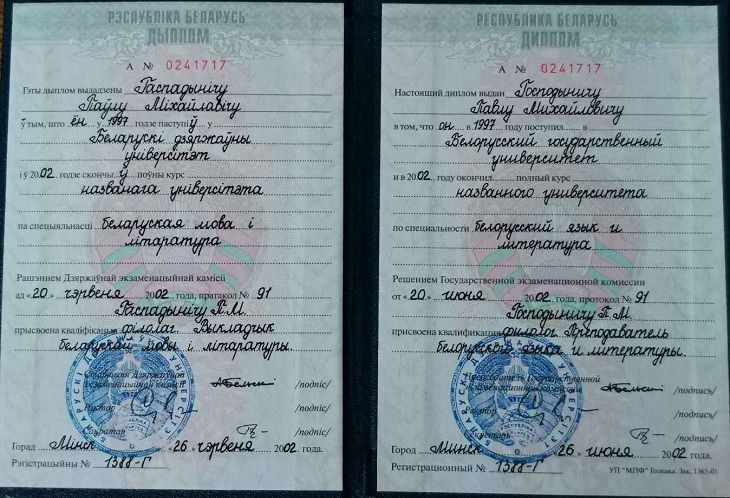 РЭСПУБЛІКА БЕЛАРУСЬ
ДЫПЛОМ
А № 0241717
Гэты дыплом выдадзены Гаспадынічу
Паўлу Міхайлавічу
ў тым, што ён у 1997 годзе паступіў у
Беларускі дзяржаўны
ўніверсітэт
і ў 2002 годзе скончыў поўны курс
названага ўніверсітэта
па спецыяльнасці беларуская мова і
літаратура
Рашэннем Дзяржаўнай экзаменацыйнай камісіі
ад «20» чэрвеня 2002 года, пратакол № 91
Гаспадынічу П.М.
прысвоена кваліфікацыя філолаг. Выкладчык
беларускай мовы і літаратуры.
Старшыня Дзяржаўнай
экзаменацыйнай камісіі /подпіс/
Рэктар /подпіс/
Сакратар /подпіс/
Горад Мінск «26» чэрвеня 2002 года.
Рэгістрацыйны № 1388-Г
РЕСПУБЛИКА БЕЛАРУСЬ
ДИПЛОМ
А № 0241717
Настоящий диплом выдан Господыничу
Павлу Михайловичу
в том, что он в 1997 году поступил в
Белорусский государственный
университет
и в 2002 году окончил полный курс
названного университета
по специальности белорусский язык и
литература
Решением Государственной экзаменационной комиссии
от «20» июня 2002 года, протокол № 91
Господыничу П.М.
присвоена квалификация филолог. Преподаватель
белорусского языка и литературы.
Председатель Государственной
экзаменационной комиссии /подпись/
Ректор /подпись/
Секретарь /подпись/
Город Минск «26» июня 2002 года.
Регистрационный № 1388-Г
УП "МПФ" Гознака. Зак. 1365-01